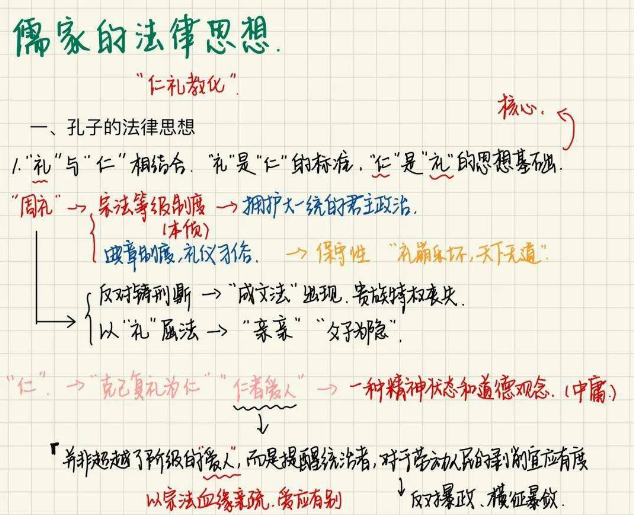 儒家的法律思想.
"仁礼教化".
核心.
一、孔子的法律思想
1."礼"与"仁"相结合. "礼"是"仁"的标准,"仁"是"礼"的思想基础出.
"周礼" → 宗法等级制度 → 拥护大一统的君主政治.
(本质)
典章制度,礼仪习俗. → 保守性 "礼崩乐坏,天下无道".
反对铸刑鼎 → "成文法"出现.贵族特权丧失.
以"礼"屈法 → "亲亲" "父子为隐".
"仁". → "克己复礼为仁" "仁者爱人" → 一种精神状态和道德观念.(中庸.)
「并非超越了阶级的"爱人",而是提醒统治者,对于劳动人民的剥削宜应有度
以宗法血缘亲疏.爱应有别 反对暴政、横征暴敛.